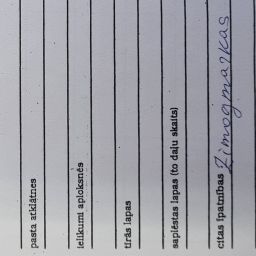 pasta atklātnes
ielikumi aploksnēs
tīrās lapas
saplēstas lapas (to daļu skaits)
citas īpatnības Zīmogmarkas